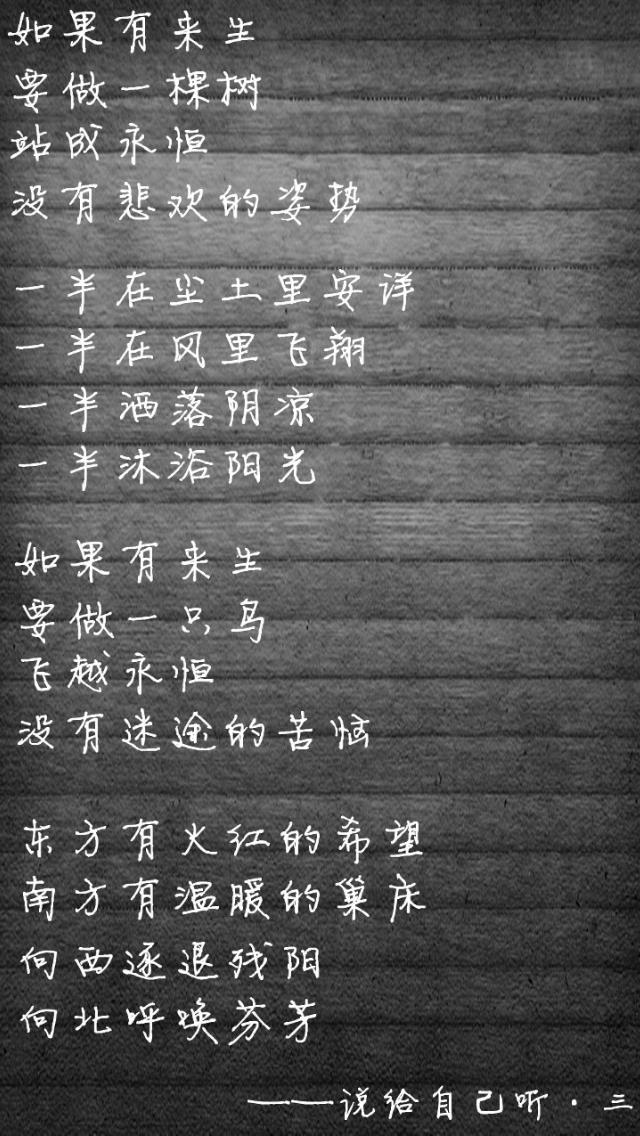 如果有来生
要做一棵树
站成永恒
没有悲欢的姿势
一半在尘土里安详
一半在风里飞翔
一半洒落阴凉
一半沐浴阳光
如果有来生
要做一只鸟
飞越永恒
没有迷途的苦恼
东方有火红的希望
南方有温暖的巢床
向西逐退残阳
向北呼唤芬芳
——说给自己听·三